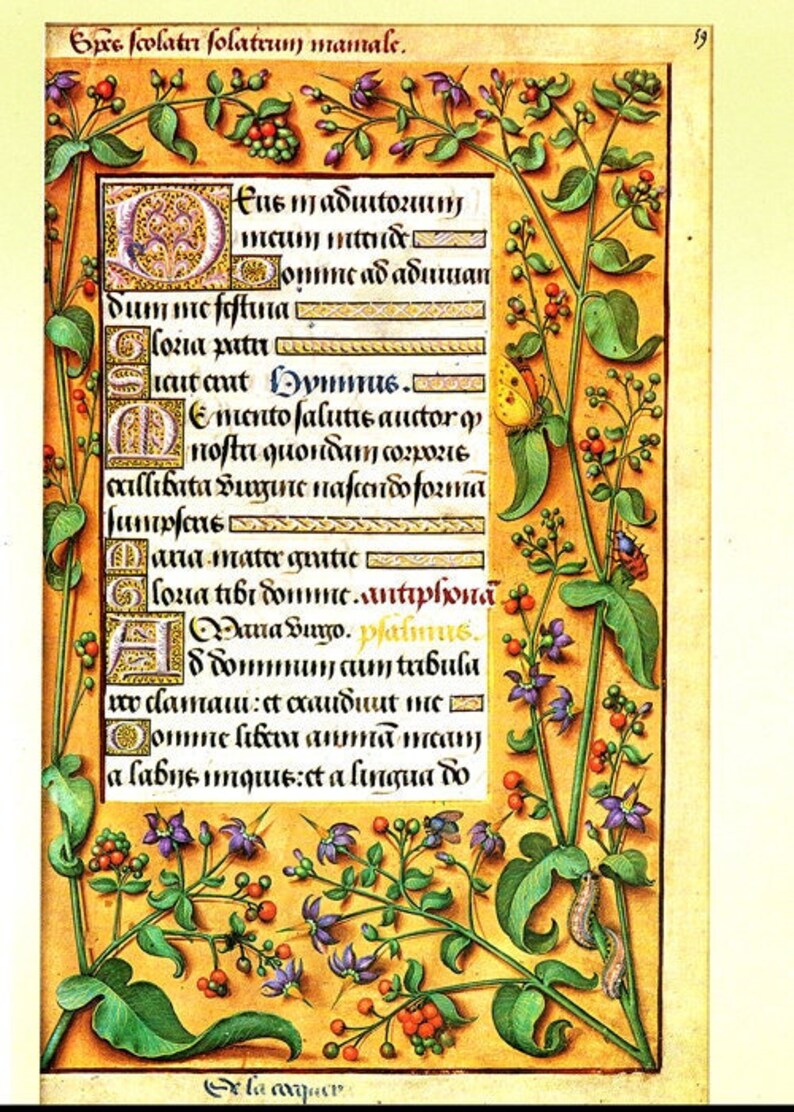 Spēs scolatri solatrum mamale.
59
Deus in adiutorium
meum intende
Domine ad adiuuan
dum me festina
Gloria patri
Sicut erat Hymnus.
Memento salutis auctor q
nostri quondam corporis
ex illibata Virgine nascendo formā
sumpseris
Maria mater gratie
Gloria tibi domine. antiphonā
Maria Virgo. psalmus.
Ad dominum cum tribula
rer clamaui: et exaudiuit me
Domine libera animā meam
a labijs iniquis: et a lingua do
De la